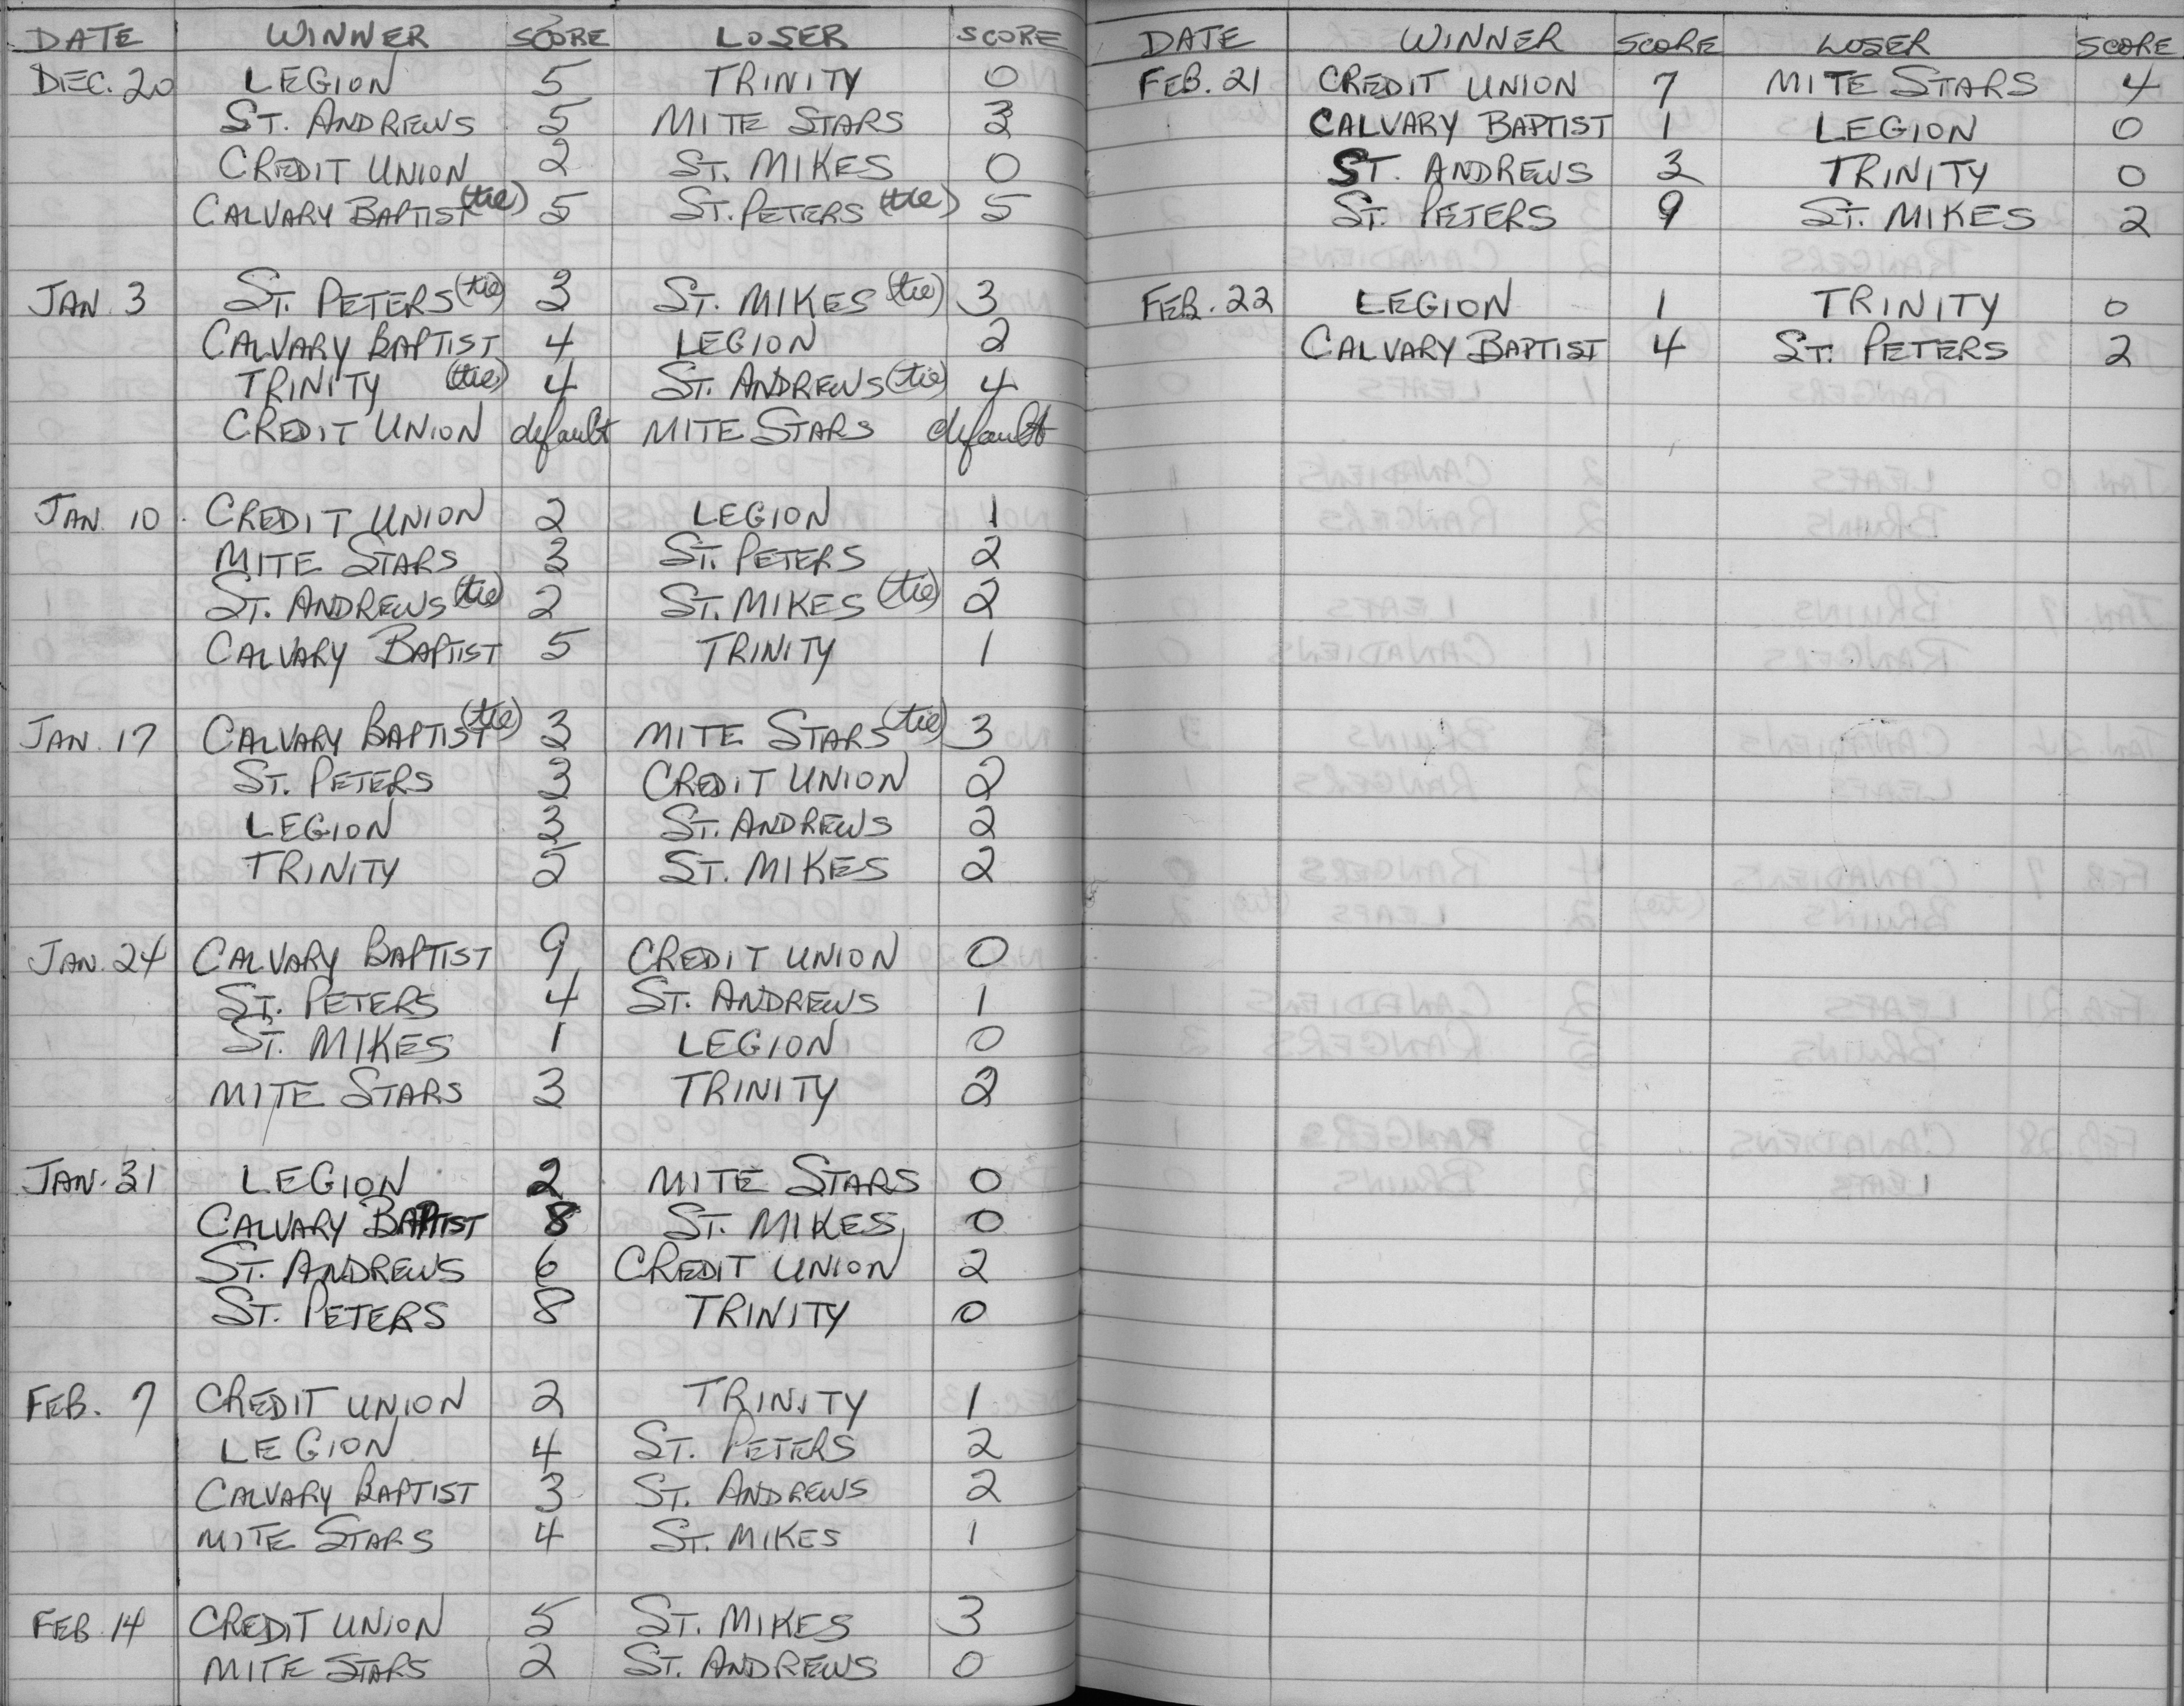 DATE WINNER SCORE LOSER SCORE
DEC. 20 LEGION 5 TRINITY 0
ST. ANDREWS 5 MITE STARS 3
CREDIT UNION 2 ST. MIKES 0
CALVARY BAPTIST (tie) 5 ST. PETERS (tie) 5
JAN. 3 ST. PETERS (tie) 3 ST. MIKES (tie) 3
CALVARY BAPTIST 4 LEGION 2
TRINITY (tie) 4 ST. ANDREWS (tie) 4
CREDIT UNION default MITE STARS default
JAN. 10 CREDIT UNION 2 LEGION 1
MITE STARS 3 ST. PETERS 2
ST. ANDREWS (tie) 2 ST. MIKES (tie) 2
CALVARY BAPTIST 5 TRINITY 1
JAN. 17 CALVARY BAPTIST (tie) 3 MITE STARS (tie) 3
ST. PETERS 3 CREDIT UNION 2
LEGION 3 ST. ANDREWS 2
TRINITY 5 ST. MIKES 2
JAN. 24 CALVARY BAPTIST 9 CREDIT UNION 0
ST. PETERS 4 ST. ANDREWS 1
ST. MIKES 1 LEGION 0
MITE STARS 3 TRINITY 2
JAN. 31 LEGION 2 MITE STARS 0
CALVARY BAPTIST 8 ST. MIKES 0
ST. ANDREWS 6 CREDIT UNION 2
ST. PETERS 8 TRINITY 0
FEB. 7 CREDIT UNION 2 TRINITY 1
LEGION 4 ST. PETERS 2
CALVARY BAPTIST 3 ST. ANDREWS 2
MITE STARS 4 ST. MIKES 1
FEB. 14 CREDIT UNION 5 ST. MIKES 3
MITE STARS 2 ST. ANDREWS 0
DATE WINNER SCORE LOSER SCORE
FEB. 21 CREDIT UNION 7 MITE STARS 4
CALVARY BAPTIST 1 LEGION 0
ST. ANDREWS 3 TRINITY 0
ST. PETERS 9 ST. MIKES 2
FEB. 22 LEGION 1 TRINITY 0
CALVARY BAPTIST 4 ST. PETERS 2